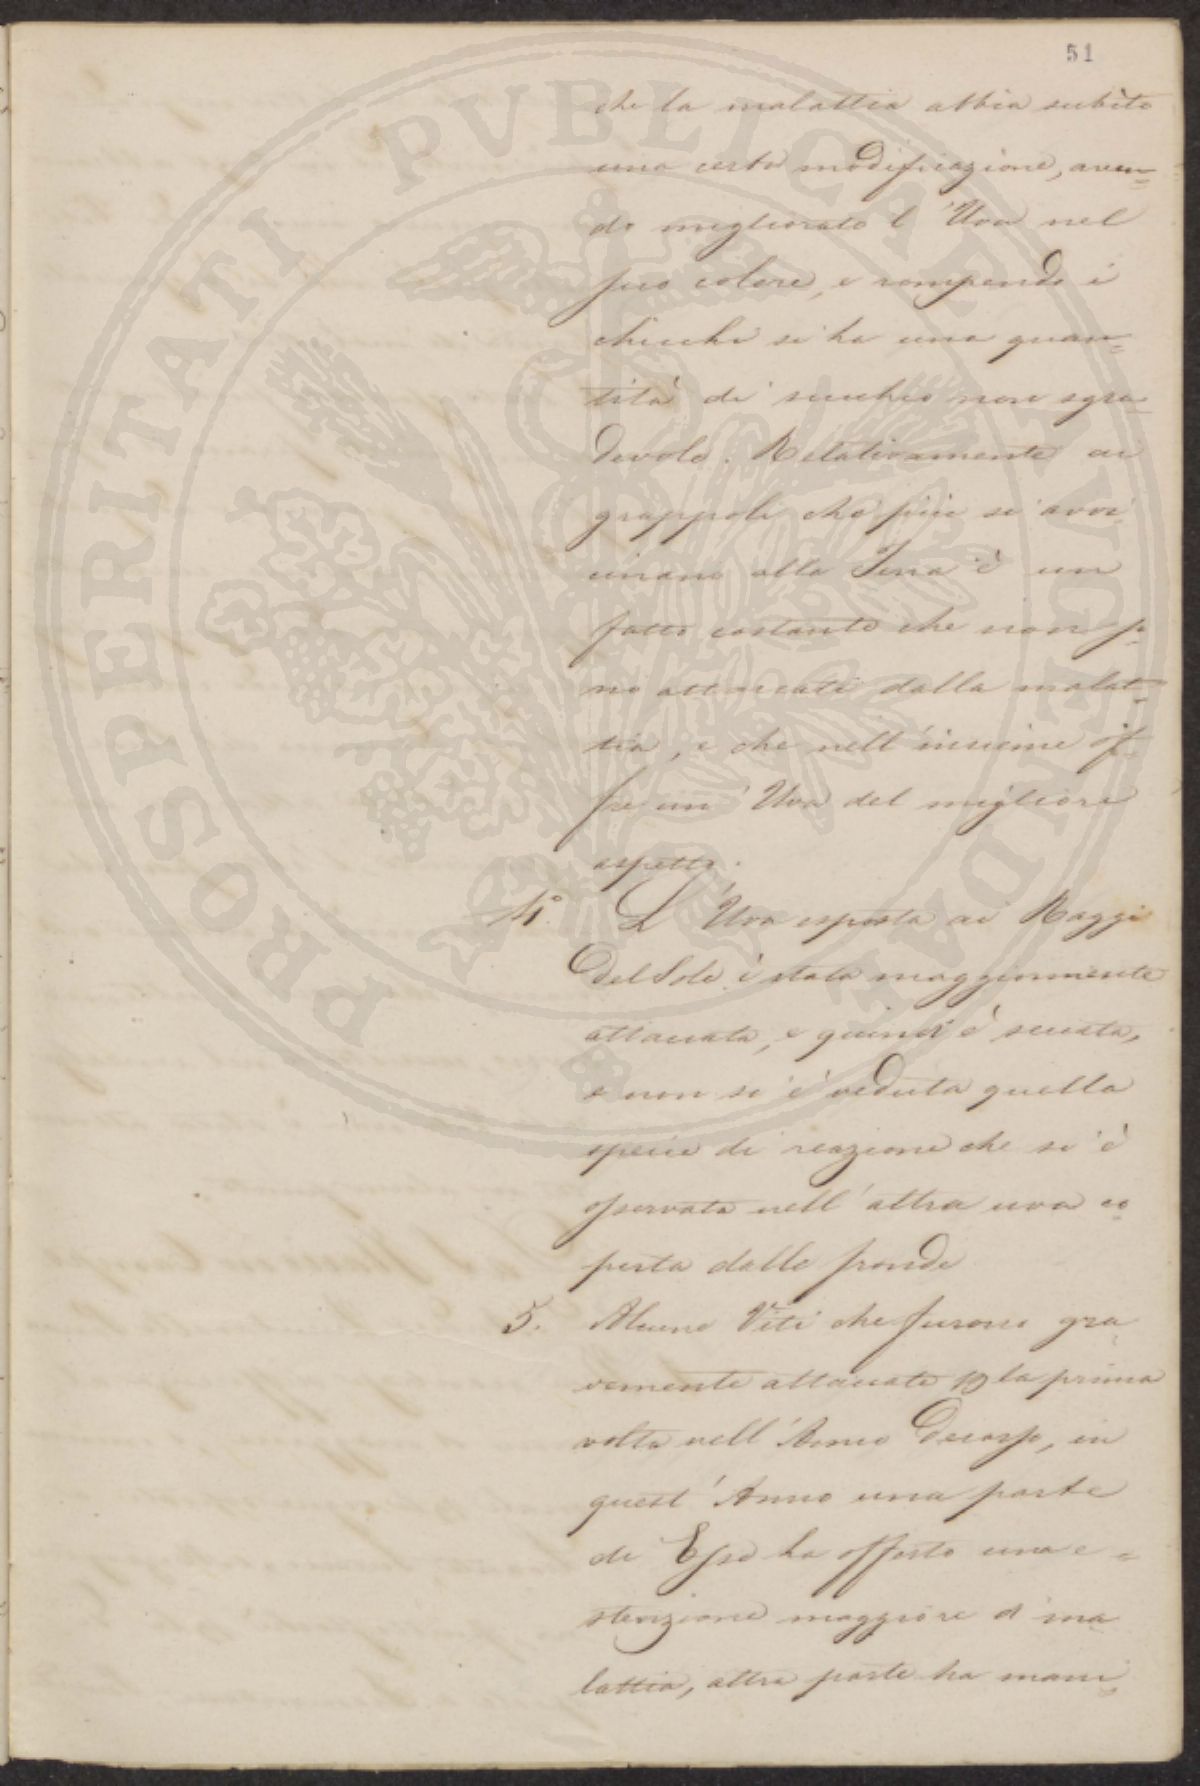 51
che la malattia abbia subito
una certa modificazione, aven=
do migliorato l'Uva nel
suo colore, e rompendo i
chicchi si ha una quan=
tità di succhio non sgra=
devole. Relativamente ai
grappoli che più si avvi=
cinano alla Terra è un
fatto costante che non so=
no attaccati dalla malat=
tia, e che nell'insieme of=
fre un'Uva del migliore
aspetto.
4°. L'Uva esposta ai Raggi
del Sole è stata maggiormente
attaccata, e quindi è seccata,
e non si è veduta quella
specie di reazione che si è
osservata nell'altra uva co=
perta dalle fronde
5. Alcune Viti che furono gra
vemente attaccate p la prima
volta nell'Anno Decorso, in
quest'Anno una parte
di Esse ha offerto una e=
stenzione maggiore di ma
lattia, altra parte ha mani=
PROSPERITATI PVBLICAE AVGENDAE